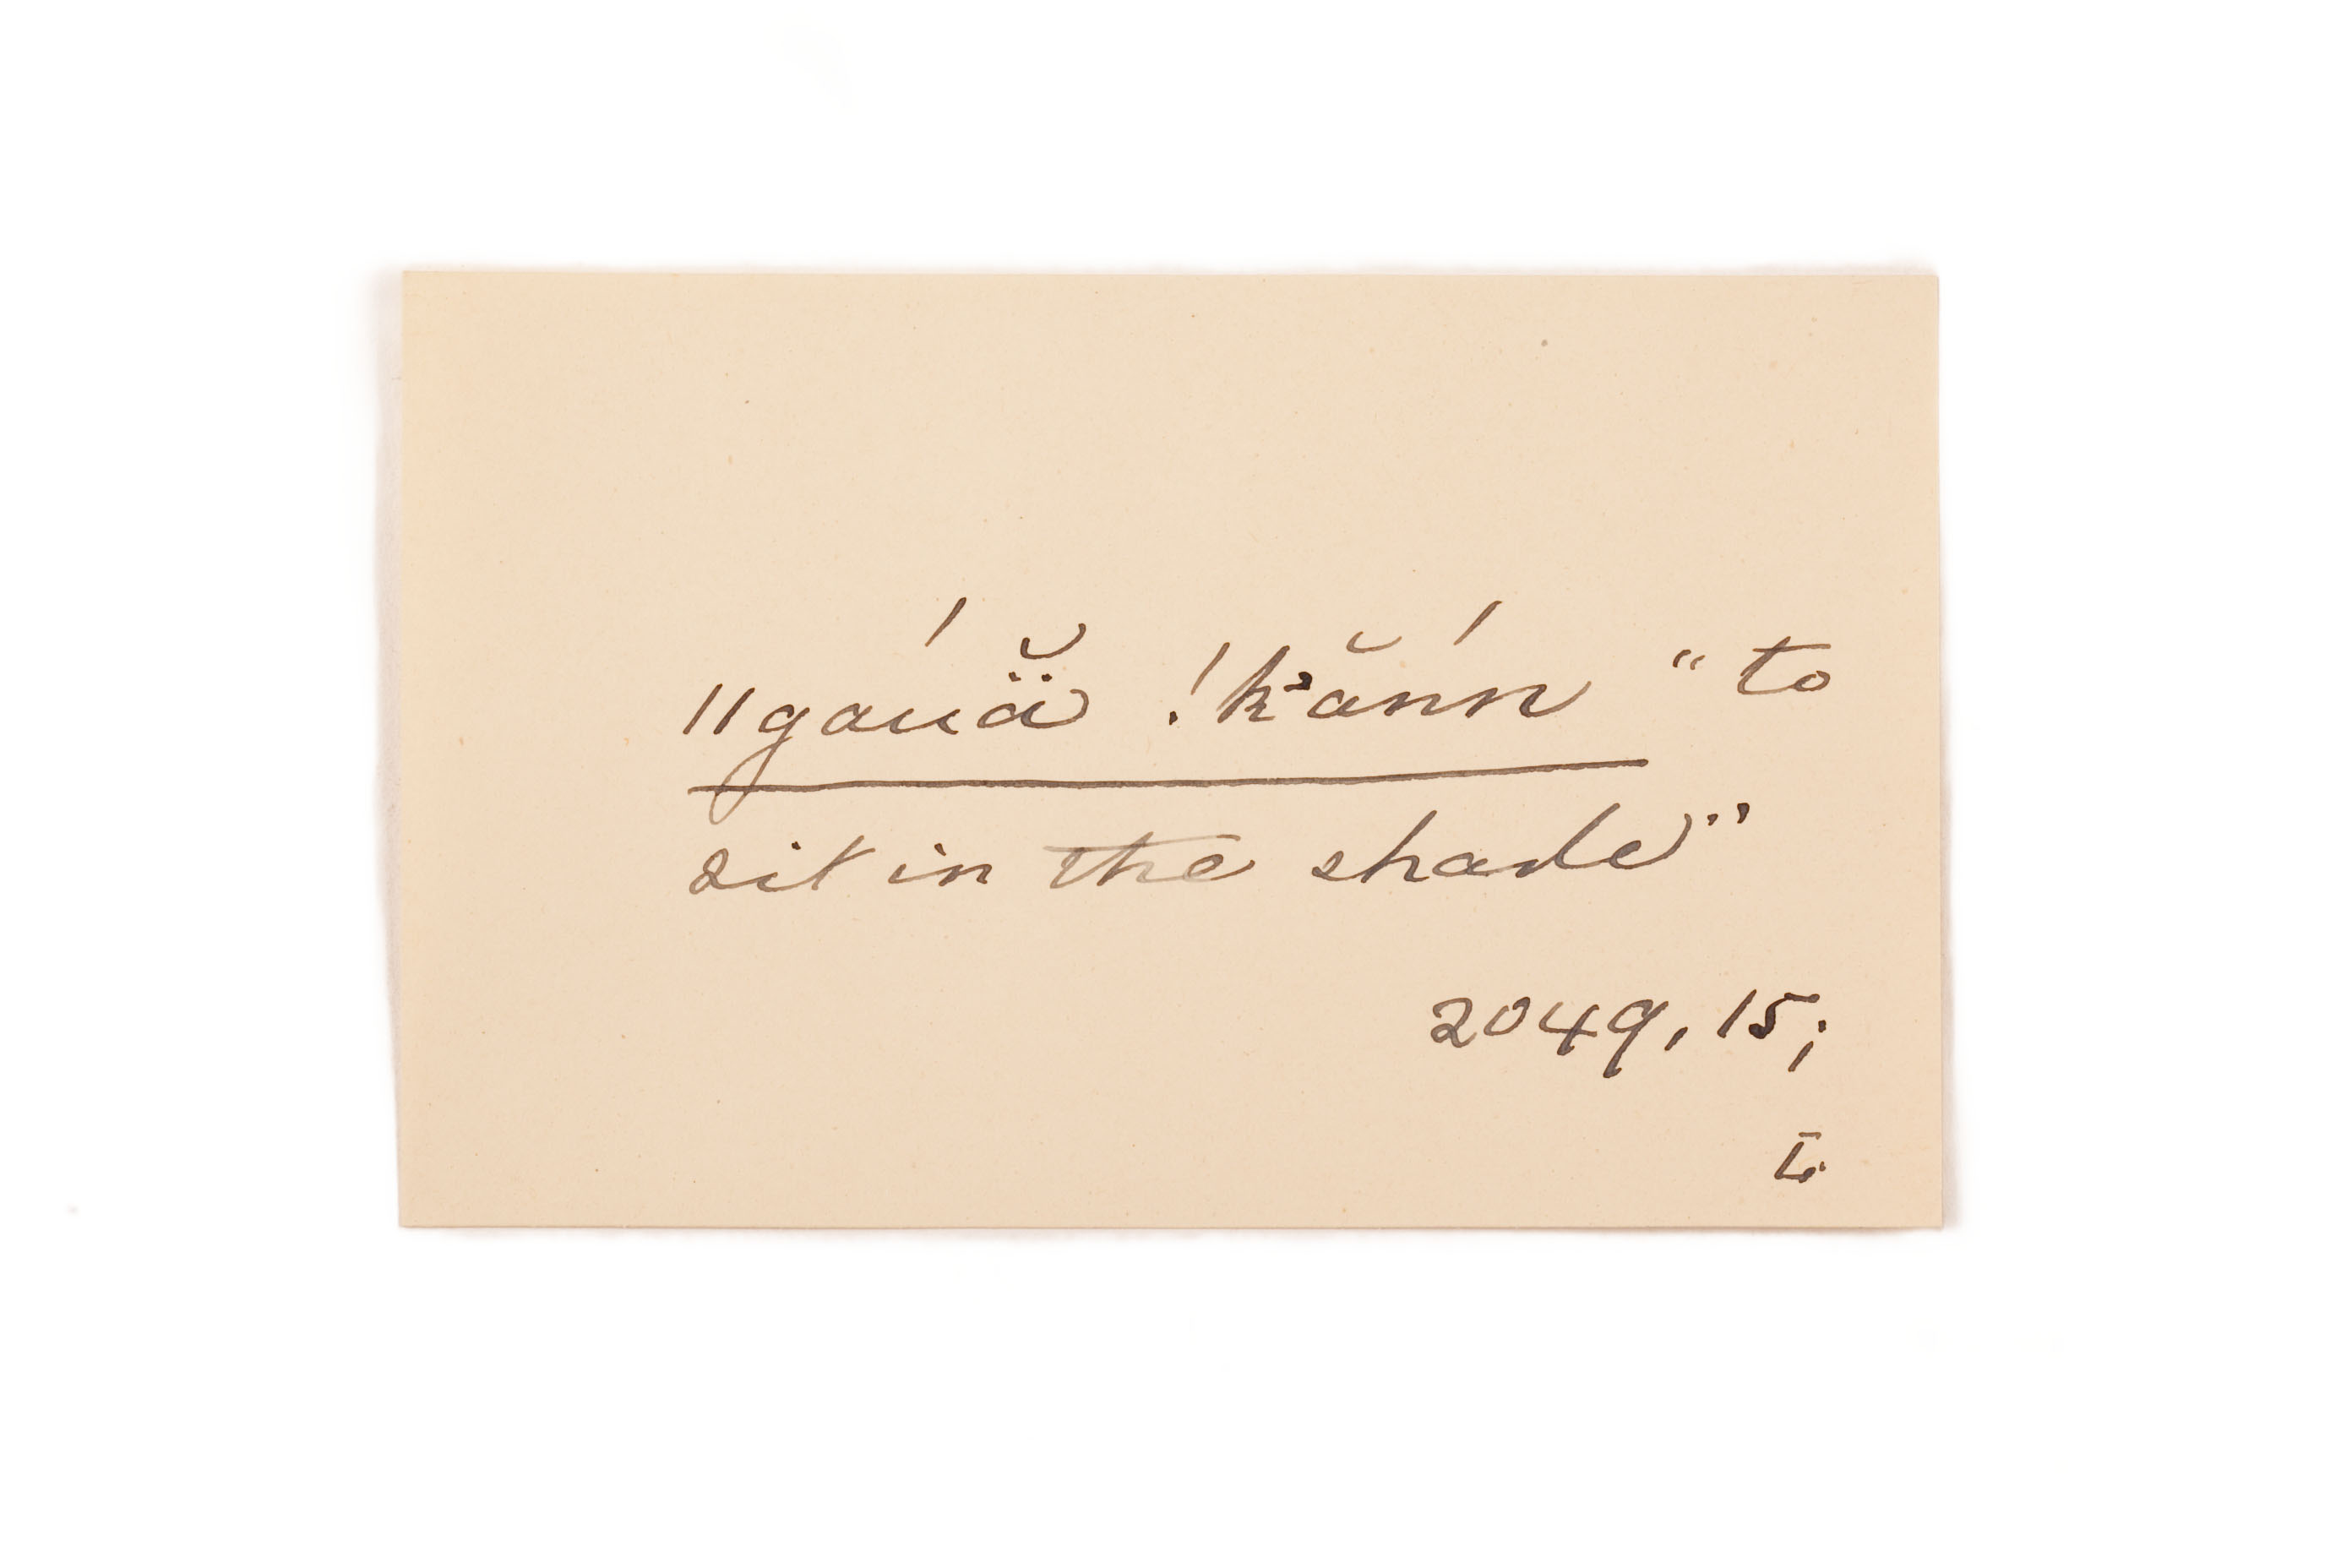 ǁgaúä̆ !kʾăńn "to
sit in the shade"
2049, 15;